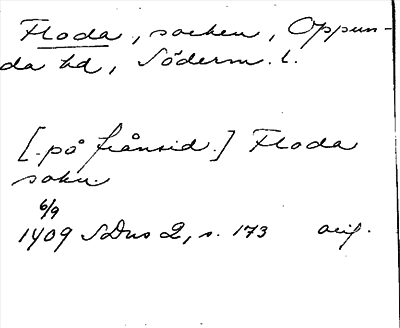 Floda, socken, Oppun-
da hd, Söderm. l.
[på frånsid.] Floda
sokn
6/9
1409 SDns 2, s. 173 orig.